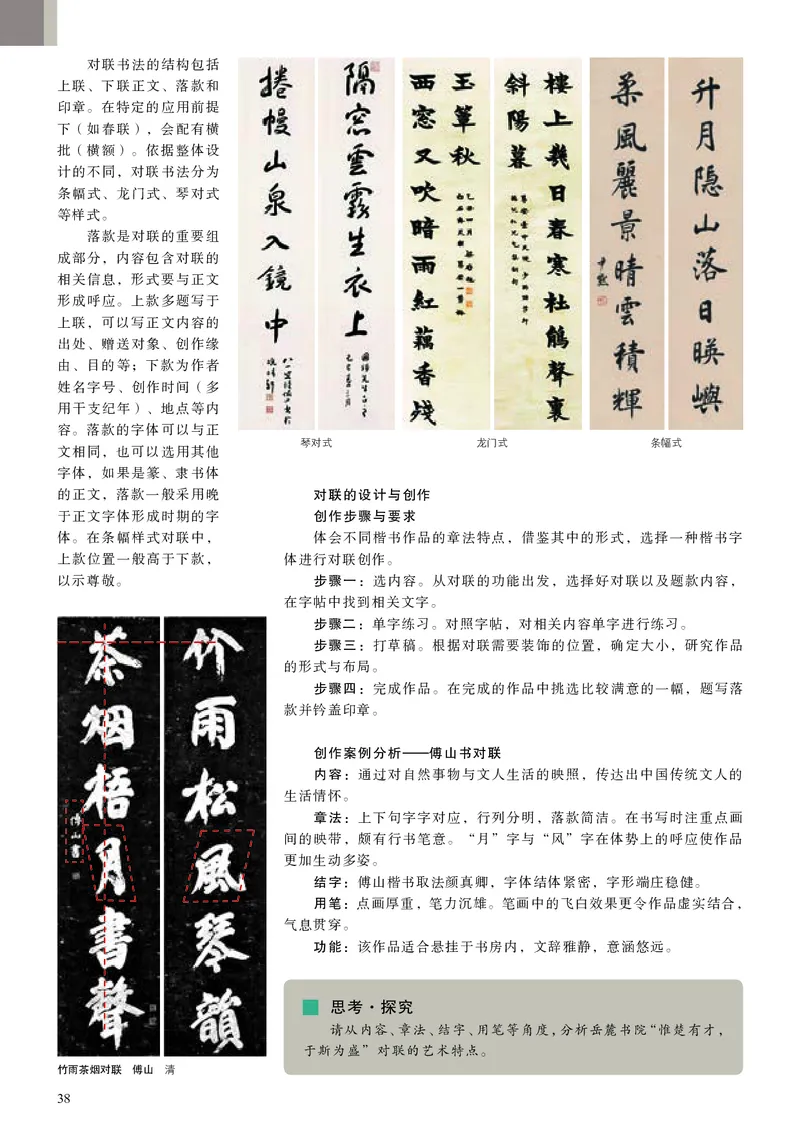 对联书法的结构包括
上联、下联正文、落款和
印章。在特定的应用前提
下（如春联），会配有横
批（横额）。依据整体设
计的不同，对联书法分为
条幅式、龙门式、琴对式
等样式。
落款是对联的重要组
成部分，内容包含对联的
相关信息，形式要与正文
形成呼应。上款多题写于
上联，可以写正文内容的
出处、赠送对象、创作缘
由、目的等；下款为作者
姓名字号、创作时间（多
用干支纪年）、地点等内
容。落款的字体可以与正
文相同，也可以选用其他
字体，如果是篆、隶书体
的正文，落款一般采用晚
于正文字体形成时期的字
体。在条幅样式对联中，
上款位置一般高于下款，
以示尊敬。
隔窓雲霧生衣上
捲幔山泉入鏡中
琴对式
樓上幾日春寒杜鵑聲裏
斜陽暮
玉簟秋
西窓又吹暗雨紅藕香殘
龙门式
升月隐山落日暎嶼
柔風麗景晴雲積輝
条幅式
竹雨松風琴韻
茶烟梧月書聲
傅山書
竹雨茶烟对联 傅山 清
对联的设计与创作
创作步骤与要求
体会不同楷书作品的章法特点，借鉴其中的形式，选择一种楷书字
体进行对联创作。
步骤一：选内容。从对联的功能出发，选择好对联以及题款内容，
在字帖中找到相关文字。
步骤二：单字练习。对照字帖，对相关内容单字进行练习。
步骤三：打草稿。根据对联需要装饰的位置，确定大小，研究作品
的形式与布局。
步骤四：完成作品。在完成的作品中挑选比较满意的一幅，题写落
款并钤盖印章。
创作案例分析——傅山书对联
内容：通过对自然事物与文人生活的映照，传达出中国传统文人的
生活情怀。
章法：上下句字字对应，行列分明，落款简洁。在书写时注重点画
间的映带，颇有行书笔意。“月”字与“风”字在体势上的呼应使作品
更加生动多姿。
结字：傅山楷书取法颜真卿，字体结体紧密，字形端庄稳健。
用笔：点画厚重，笔力沉雄。笔画中的飞白效果更令作品虚实结合，
气息贯穿。
功能：该作品适合悬挂于书房内，文辞雅静，意涵悠远。
思考·探究
请从内容、章法、结字、用笔等角度，分析岳麓书院“惟楚有才，
于斯为盛”对联的艺术特点。
38